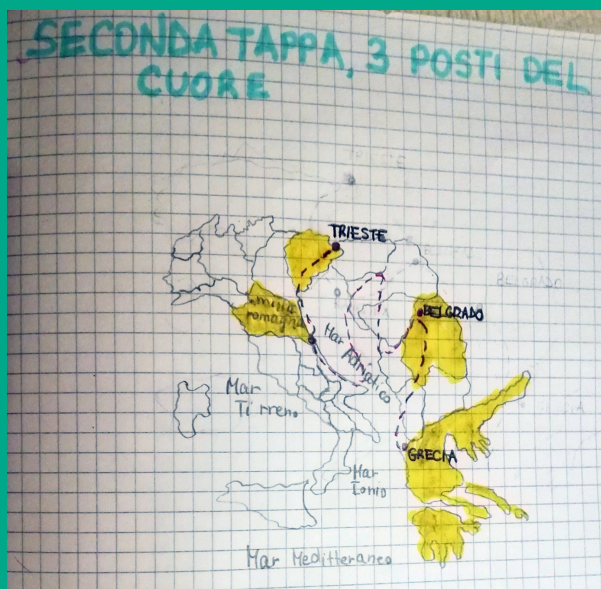 SECONDA TAPPA, 3 POSTI DEL
CUORE
TRIESTE
TRIESTE
BELGRADO
Emilia
romagna
Mar
Adriatico
Mar
Tirreno
GRECIA
Mar
Ionio
Mar Meditterraneo